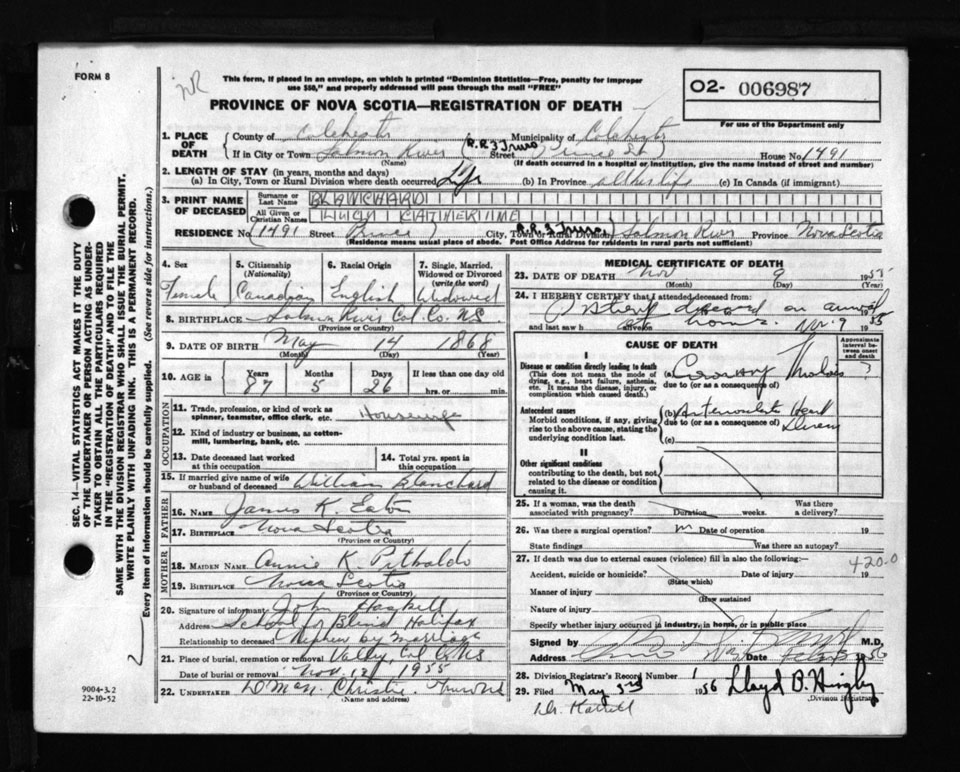 FORM 8
NR
This form, if placed in an envelope, on which is printed "Dominion Statistics—Free, penalty for improper
use $50," and properly addressed will pass through the mail "FREE"
PROVINCE OF NOVA SCOTIA—REGISTRATION OF DEATH
O2- 006987
For use of the Department only
1. PLACE OF DEATH
County of Colchester Municipality of Colchester
If in City or Town Salmon River R.R.3 Truro Street Prince St House No. 1491
(Name) (If death occurred in a hospital or institution, give the name instead of street and number)
2. LENGTH OF STAY (in years, months and days)
(a) In City, Town or Rural Division where death occurred Life (b) In Province all her life (c) In Canada (if immigrant)
3. PRINT NAME OF DECEASED
Surname or Last Name BLANCHARD
All Given or Christian Names LUCY CATHERINE
RESIDENCE No. 1491 Street Prince City, Town or Rural Division R.R.3 Truro Salmon River Province Nova Scotia
(Residence means usual place of abode. Post Office Address for residents in rural parts not sufficient)
4. Sex
Female
5. Citizenship (Nationality)
Canadian
6. Racial Origin
English
7. Single, Married, Widowed or Divorced (write the word)
Widowed
8. BIRTHPLACE Salmon River Col. Co. N.S.
(Province or Country)
9. DATE OF BIRTH May 14 1868
(Month) (Day) (Year)
10. AGE in Years Months Days If less than one day old
87 5 26 hrs. or min.
OCCUPATION
11. Trade, profession, or kind of work as spinner, teamster, office clerk, etc. Housewife
12. Kind of industry or business, as cotton-mill, lumbering, bank, etc.
13. Date deceased last worked at this occupation
14. Total yrs. spent in this occupation
15. If married give name of wife or husband of deceased William Blanchard
FATHER
16. NAME James K. Eaton
17. BIRTHPLACE Nova Scotia
(Province or Country)
MOTHER
18. MAIDEN NAME Annie K. Pitblado
19. BIRTHPLACE Nova Scotia
(Province or Country)
20. Signature of informant John Haskell
Address School for Blind Halifax
Relationship to deceased Nephew by Marriage
21. Place of burial, cremation or removal Valley, Col Co NS
Date of burial or removal Nov. 12 1955
22. UNDERTAKER Christie Truro N.S.
(Name and address)
MEDICAL CERTIFICATE OF DEATH
23. DATE OF DEATH Nov 9 1955
(Month) (Day)
24. I HEREBY CERTIFY that I attended deceased from:
on arrival
and last saw h alive on at home. Nov. 9 1955
CAUSE OF DEATH
Approximate interval between onset and death
I
Disease or condition directly leading to death
(This does not mean the mode of dying, e.g., heart failure, asthenia, etc. It means the disease, injury, or complication which caused death.)
(a) Coronary ?
due to (or as a consequence of)
Antecedent causes
Morbid conditions, if any, giving rise to the above cause, stating the underlying condition last.
(b) Heart
due to (or as a consequence of) Disease
(c)
II
Other significant conditions
contributing to the death, but not related to the disease or condition causing it.
25. If a woman, was the death associated with pregnancy? Duration weeks. Was there a delivery?
26. Was there a surgical operation? Date of operation 19
State findings Was there an autopsy?
27. If death was due to external causes (violence) fill in also the following: 420.0
Accident, suicide or homicide? Date of injury 19
(State which)
Manner of injury
(How sustained
Nature of injury
Specify whether injury occurred in industry, in home, or in public place
Signed by M.D.
Address Date 1956
28. Division Registrar's Record Number 1
29. Filed May 3rd 1956 Lloyd B. Hingley
Division Registrar
Dr. Kattell
SEC. 14—VITAL STATISTICS ACT MAKES IT THE DUTY
OF THE UNDERTAKER OR PERSON ACTING AS UNDER-
TAKER TO OBTAIN ALL THE PARTICULARS REQUIRED
IN THE "REGISTRATION OF DEATH" AND TO FILE THE
SAME WITH THE DIVISION REGISTRAR WHO SHALL ISSUE THE BURIAL PERMIT.
WRITE PLAINLY WITH UNFADING INK. THIS IS A PERMANENT RECORD.
Every item of information should be carefully supplied. (See reverse side for instructions.)
9004-3.2
22-10-52